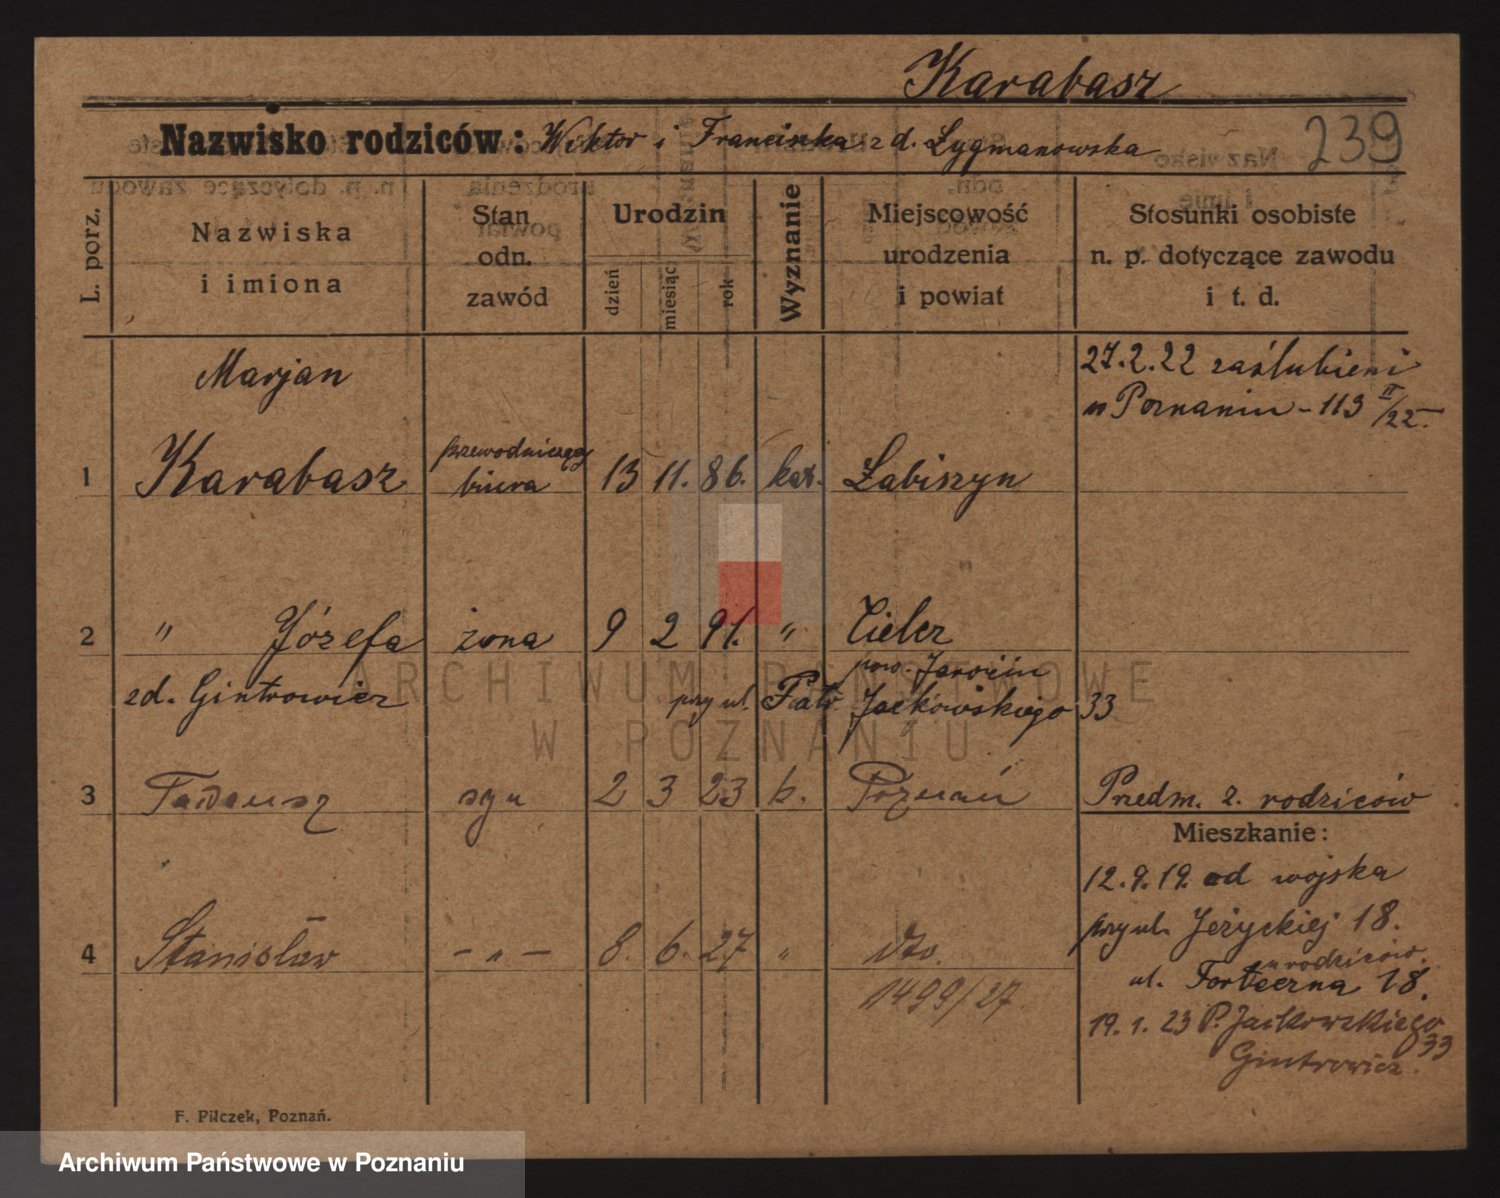 Karabasz
Nazwisko rodziców: Wiktor i Franciszka z d. Zygmanowska
239
L. porz.
Nazwiska
i imiona
Stan
odn.
zawód
Urodzin
dzień
miesiąc
rok
Wyznanie
Miejscowość
urodzenia
i powiat
Stosunki osobiste
n. p. dotyczące zawodu
i t. d.
27.2.22 zaślubieni
w Poznaniu - 113 II/22.
Marjan
1 Karabasz przewodniczący biura 13 11. 86. kat. Łabiszyn
2 " Józefa żona 9 2 91. " Cielcz
pow. Jarocin
zd. Gintrowicz przy ul. Patr. Jackowskiego 33
3 Tadeusz syn 2 3 23 k. Poznań Przedm. z. rodziców
Mieszkanie:
12.9.19. od wojska
przy ul. Jeżyckiej 18.
u rodziców.
4 Stanisław - " - 8. 6. 27 " dto.
ul. Forteczna 18.
1499/27.
19. 1. 23 P. Jackowskiego 33
Gintrowicz.
F. Pilczek, Poznań.
ARCHIWUM PAŃSTWOWE
W POZNANIU
Archiwum Państwowe w Poznaniu